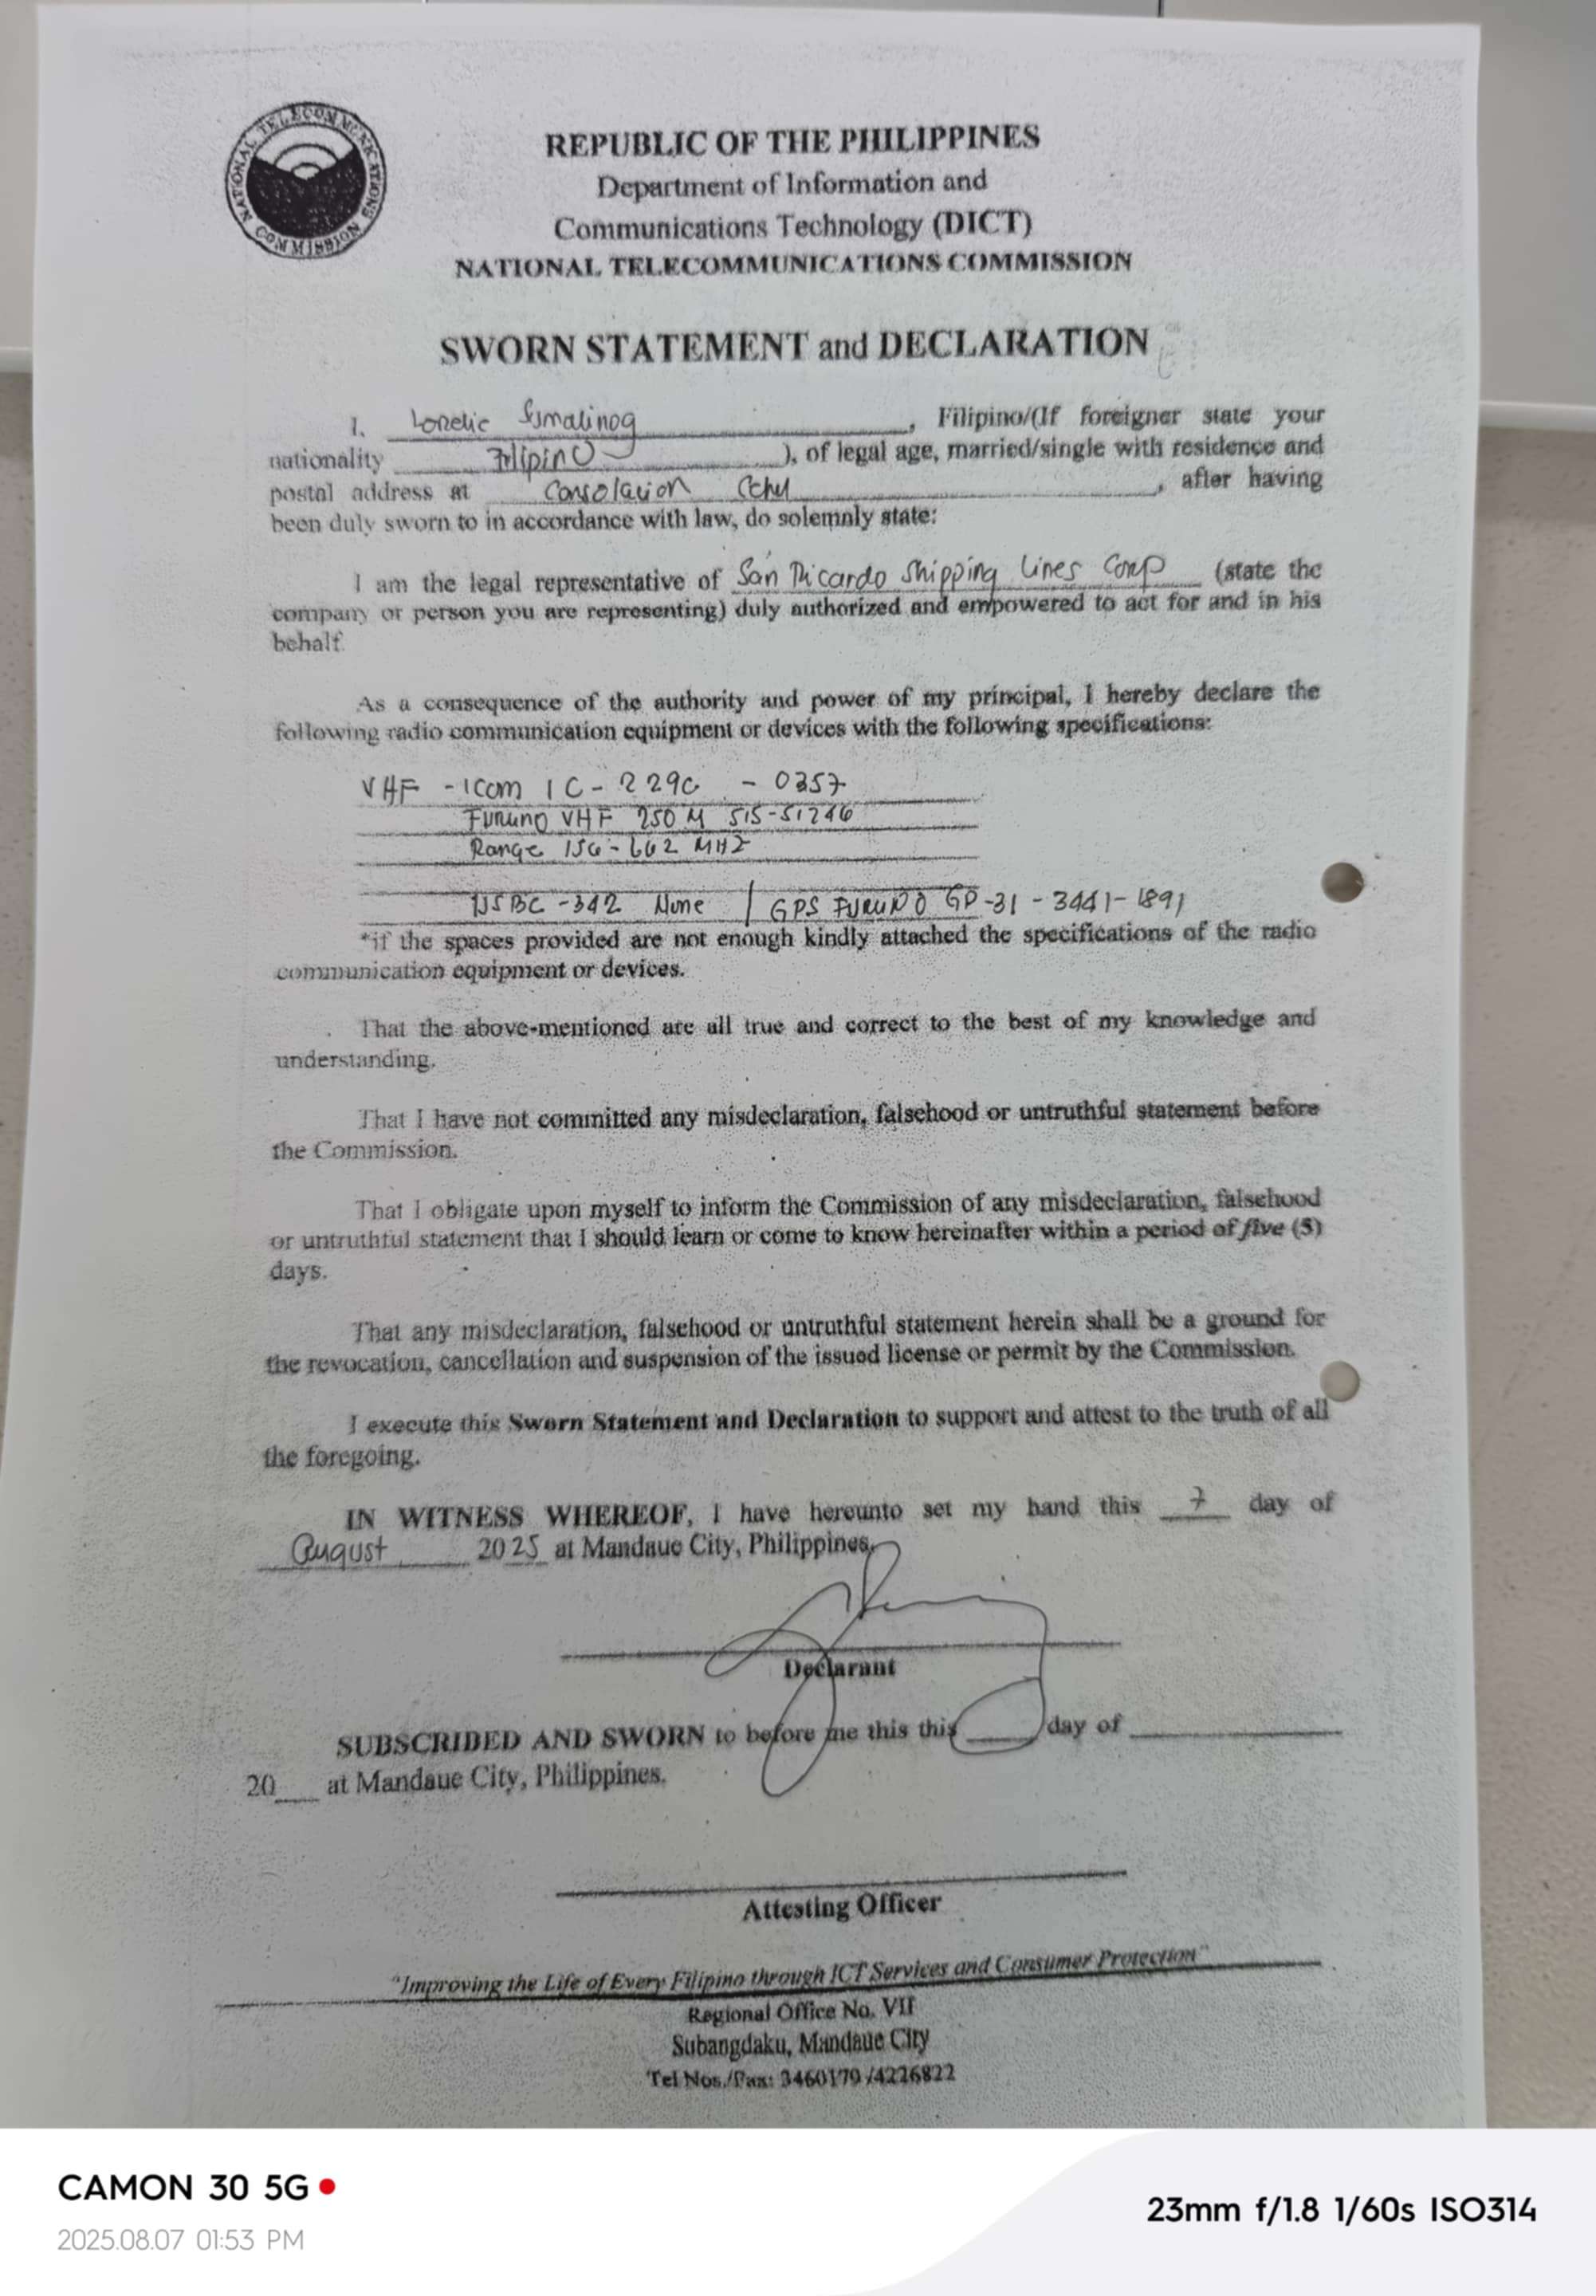 NATIONAL TELECOMMUNICATIONS COMMISSION
REPUBLIC OF THE PHILIPPINES
Department of Information and
Communications Technology (DICT)
NATIONAL TELECOMMUNICATIONS COMMISSION
SWORN STATEMENT and DECLARATION
I, Lorelie Sumalinog, Filipino/(If foreigner state your
nationality Filipino), of legal age, married/single with residence and
postal address at Consolacion Cebu, after having
been duly sworn to in accordance with law, do solemnly state:
I am the legal representative of San Ricardo Shipping Lines Corp (state the
company or person you are representing) duly authorized and empowered to act for and in his
behalf.
As a consequence of the authority and power of my principal, I hereby declare the
following radio communication equipment or devices with the following specifications:
VHF - Icom IC-229C - 0357
Furuno VHF 250 M 515-51246
Range 156-662 MHz
-342 None / GPS FURUNO GP-31 - 3441-1891
*if the spaces provided are not enough kindly attached the specifications of the radio
communication equipment or devices.
That the above-mentioned are all true and correct to the best of my knowledge and
understanding.
That I have not committed any misdeclaration, falsehood or untruthful statement before
the Commission.
That I obligate upon myself to inform the Commission of any misdeclaration, falsehood
or untruthful statement that I should learn or come to know hereinafter within a period of five (5)
days.
That any misdeclaration, falsehood or untruthful statement herein shall be a ground for
the revocation, cancellation and suspension of the issued license or permit by the Commission.
I execute this Sworn Statement and Declaration to support and attest to the truth of all
the foregoing.
IN WITNESS WHEREOF, I have hereunto set my hand this 7 day of
August 2025 at Mandaue City, Philippines.
Declarant
SUBSCRIBED AND SWORN to before me this this ___ day of ___
20___ at Mandaue City, Philippines.
Attesting Officer
"Improving the Life of Every Filipino through ICT Services and Consumer Protection"
Regional Office No. VII
Subangdaku, Mandaue City
Tel Nos./Fax: 3460179 /4226822
CAMON 30 5G
2025.08.07 01:53 PM
23mm f/1.8 1/60s ISO314